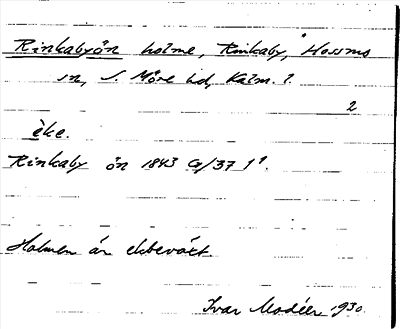 Rinkabyön holme, Rinkaby, Hossmo
sn, S. Möre hd, Kalm. l.
2
èke.
Rinkaby ön 1843 G/37 1¹.
Holmen är ekbeväxt.
Ivar Modéer 1930.